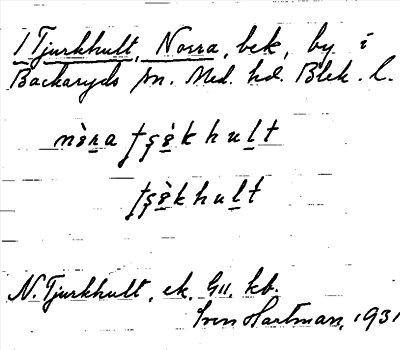 1 Tjurkhult, Norra, bek, by i
Backaryds sn. Med. hd. Blek. l.
nò̱ra tʂö̱̀khult
tʂö̱̀khult
N. Tjurkhult, ek. G11. kb.
Sven Hartman, 1931